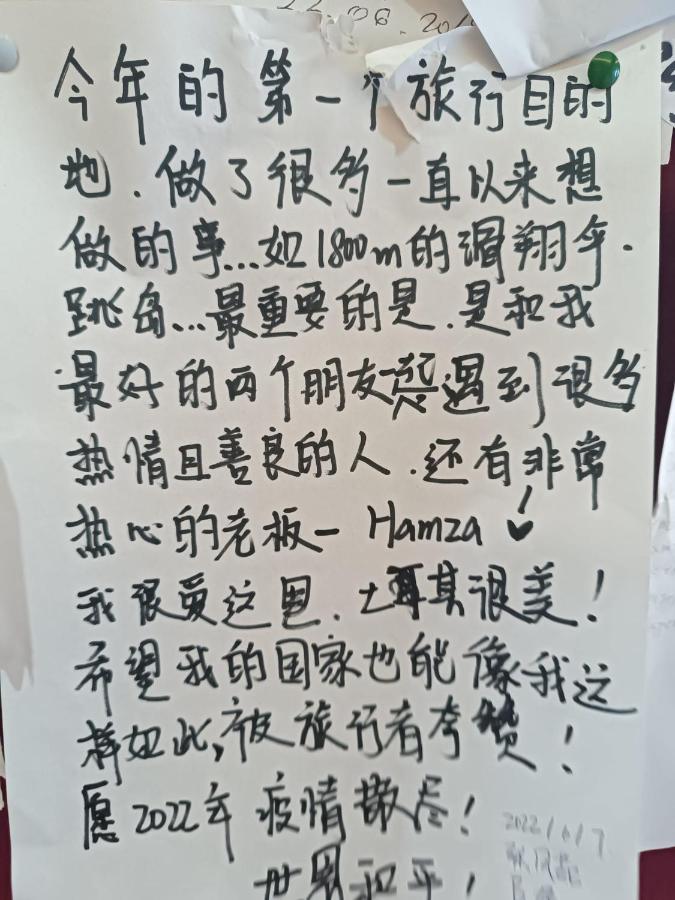 22.06.201
今年的第一个旅行目的
地.做了很多一直以来想
做的事...如1800m的滑翔伞.
跳岛...最重要的是.是和我
最好的两个朋友一起遇到很多
热情且善良的人.还有非常
热心的老板- Hamza ♥!
我很爱这里.土耳其很美!
希望我的国家也能像我这
样如此,被旅行者夸赞!
愿2022年 疫情散尽!
世界和平!
2022/6/7